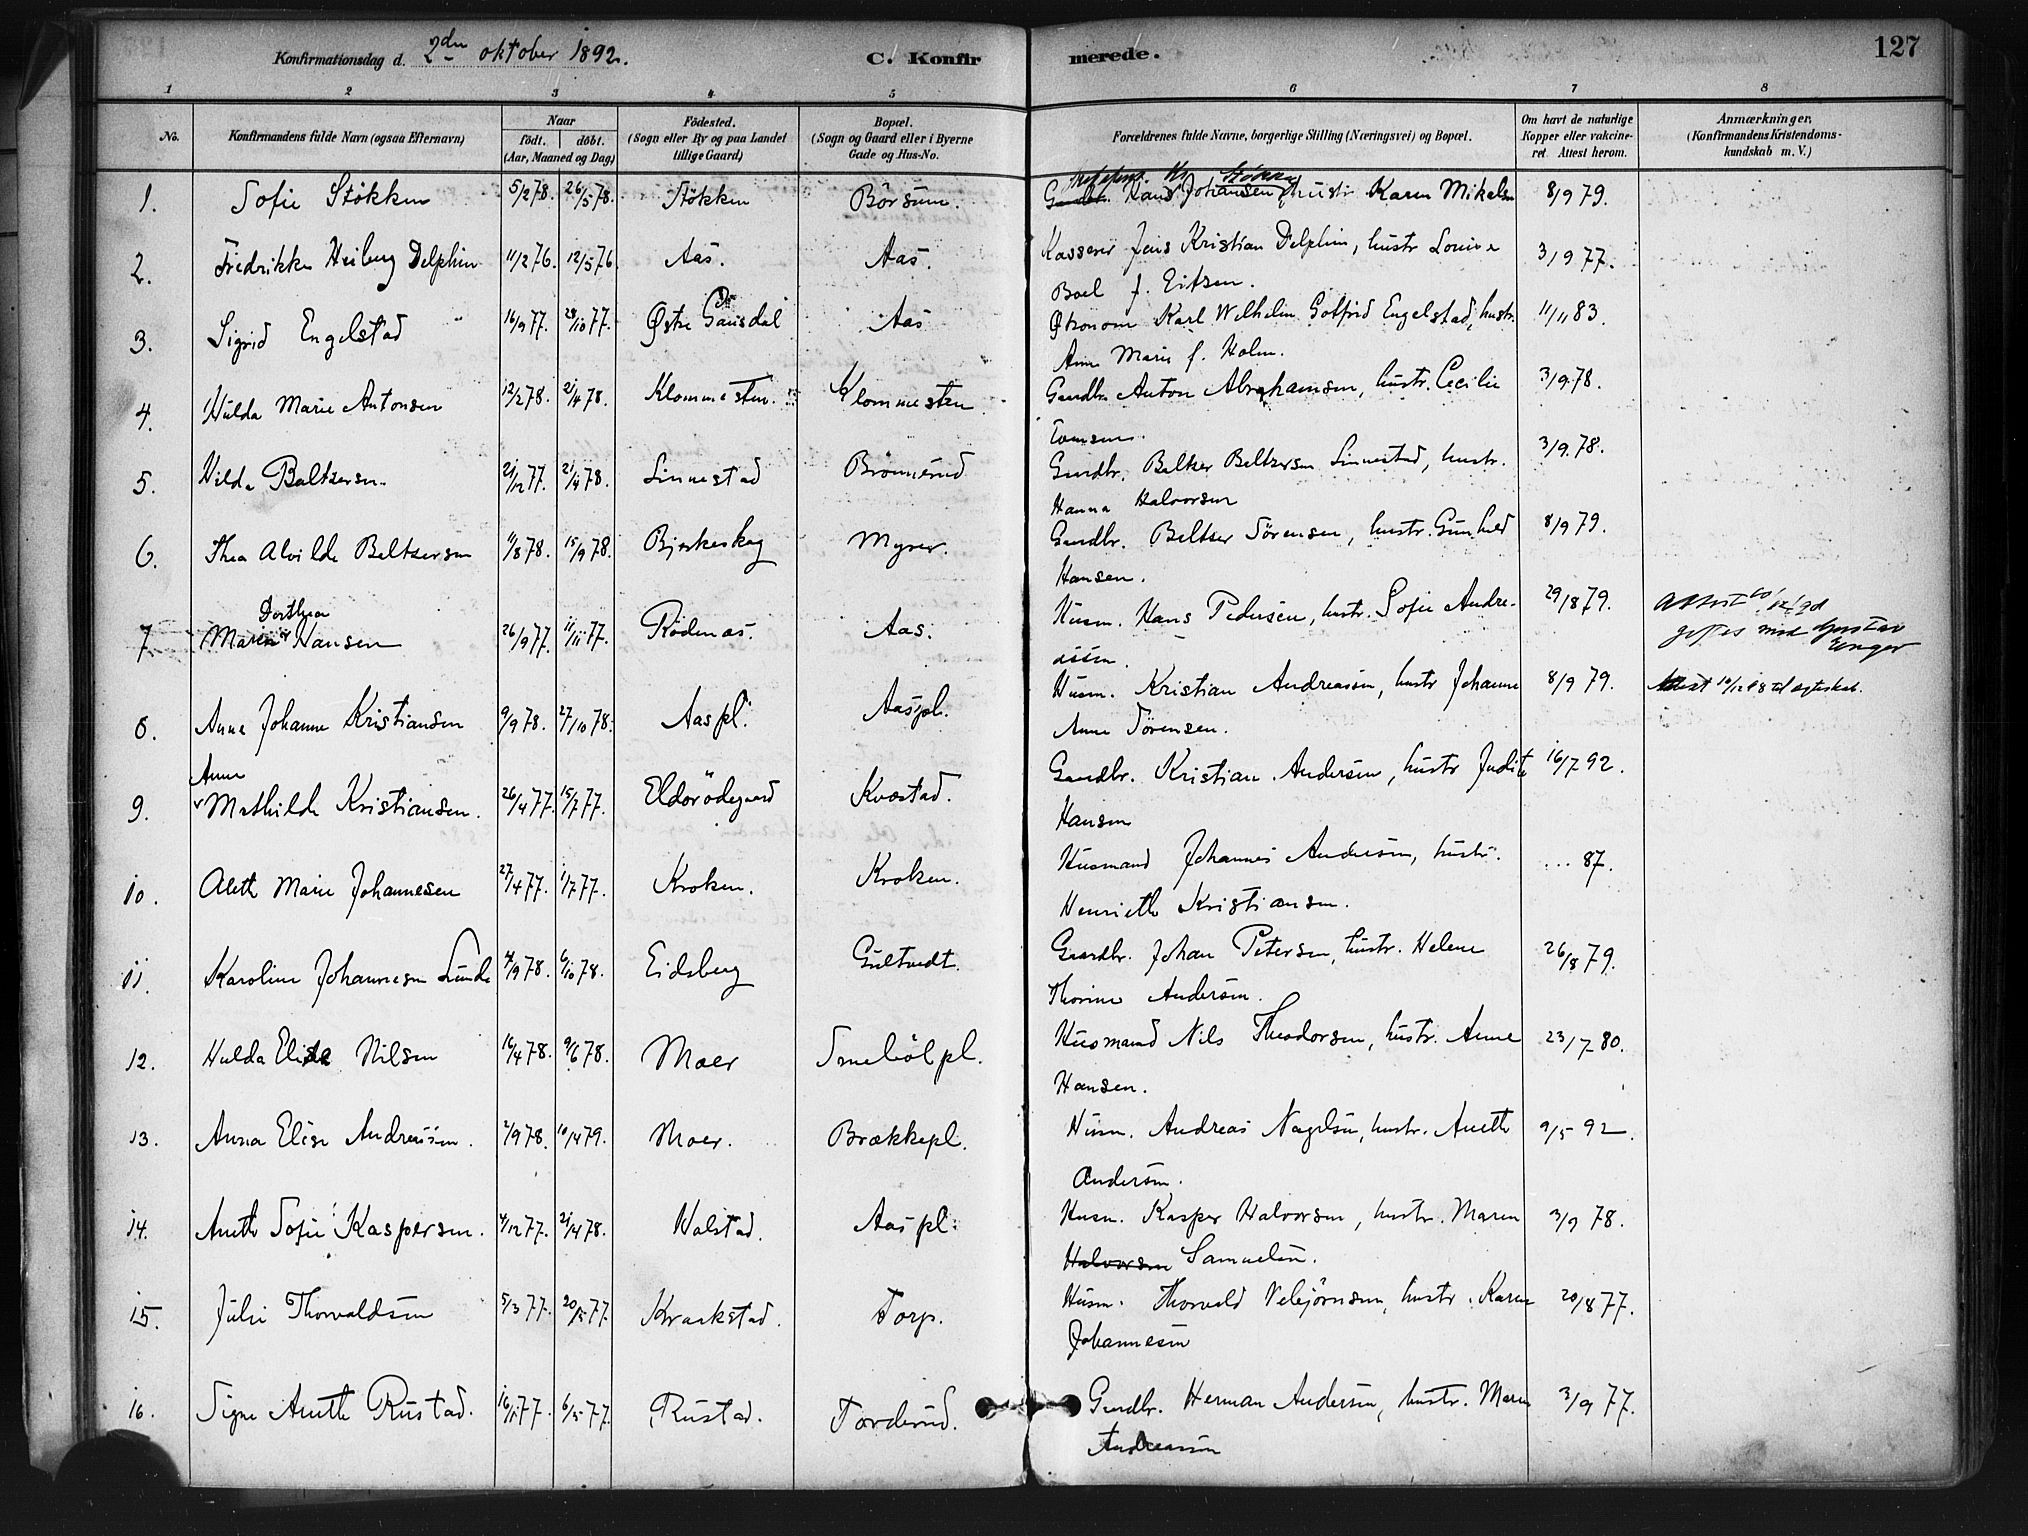 Konfirmationsdag d. 2den oktober 1892.
C. Konfirmerede.
127
1 2 3 4 5 6 7 8
No.
Konfirmandens fulde Navn (ogsaa Efternavn)
Naar
født. døbt.
(Aar, Maaned og Dag)
Fødested.
(Sogn eller By og paa Landet
tillige Gaard)
Bopæl.
(Sogn og Gaard eller i Byerne
Gade og Hus-No.
Forældrenes fulde Navne, borgerlige Stilling (Næringsvei) og Bopæl.
Om havt de naturlige
Kopper eller vakcine-
ret. Attest herom.
Anmærkninger,
(Konfirmandens Kristendoms-
kundskab m. V.)
1. Sofie Stökken 5/2 78. 26/5 78. Stökken Börsum. Gaardbr. Hans Johansen, hustr. Karen Mikelsen 8/9 79.
Stökken
2. Fredrikke Heiberg Delphin 11/2 76. 12/5 76. Aas. Aas. Kasserer Jens Kristian Delphin, hustr Louise 3/9 77.
Boel f. Eitzen.
3. Sigrid Engelstad 16/9 77. 28/10 77. Østre Gausdal Aas Økonom Karl Wilhelm Gotfrid Engelstad, hustr. 11/11 83.
Anne Marie f. Holm.
4. Hulda Marie Antonsen 12/2 78. 21/4 78. Klommesten. Klommesten Gaardbr. Anton Abrahamsen, hustr. Cecilie 3/9 78.
Tomsen.
5. Hilda Baltzersen. 21/12 77. 21/4 78. Linnestad Brönnerud Gaardbr. Beltzer Beltzersen Linnestad, hustr. 3/9 78.
Hanna Halvorsen
6. Thea Alvilde Beltzersen 11/8 78. 15/9 78. Bjerkeskog Myrer. Gaardbr. Beltzer Sörensen, hustr. Gunhild 8/9 79.
Hansen.
Dorthea
7. Maria Hansen 26/9 77. 11/11 77. Rödenæs. Aas. Husm. Hans Pedersen, hustr. Sofie Andre- 29/8 79. Attest
assen. giftes med Gustav
Unger
8. Anne Johanne Kristiansen 9/9 78. 27/10 78. Aaspl. Aaspl. Husm. Kristian Andreassen, hustr Johanne 8/9 79. Attest 10/12 98 til egteskab.
Anne Sörensen.
Anne
9. Mathilde Kristiansen. 26/4 77. 15/7 77. Eldorödegaard Kvestad. Gaardbr. Kristian Andersen, hustr Judite 16/7 92.
Hansen
10. Aleth Marie Johannesen 27/4 77. 1/7 77. Kroken. Kroken. Husmand Johannes Andersen, hustr. ... 87.
Henriette Kristiansen.
11. Karoline Johannesen Lunde 4/9 78. 6/10 78. Eidsberg Gultvedt. Gaardbr. Johan Petersen, hustr. Helene 26/8 79.
Thorine Andersen.
12. Hulda Elise Nilsen 16/4 78. 9/6 78. Moer Smebölpl. Husmand Nils Theodorsen, hustr. Anne 23/7 80.
Hansen.
13. Anna Elise Andreassen. 2/9 78. 10/4 79. Moer. Brækkepl. Husm. Andreas Nagelsen, hustr. Aneth 9/5 92.
Andersen.
14. Aneth Sofie Kaspersen. 4/12 77. 21/4 78. Holstad. Aaspl. Husm. Kasper Halvorsen, hustr. Maren 3/9 78.
Halvorsen Samuelsen.
15. Julie Thorvaldsen 5/3 77. 20/5 77. Kraakstad. Torp. Husm. Thorvald Vebjörnsen, hustr. Karen 20/8 77.
Johannesen
16. Signe Aneth Rustad. 16/1 77. 6/5 77. Rustad. Torderud. Gaardbr. Herman Andersen, hustr. Maren 3/9 77.
Andreassen